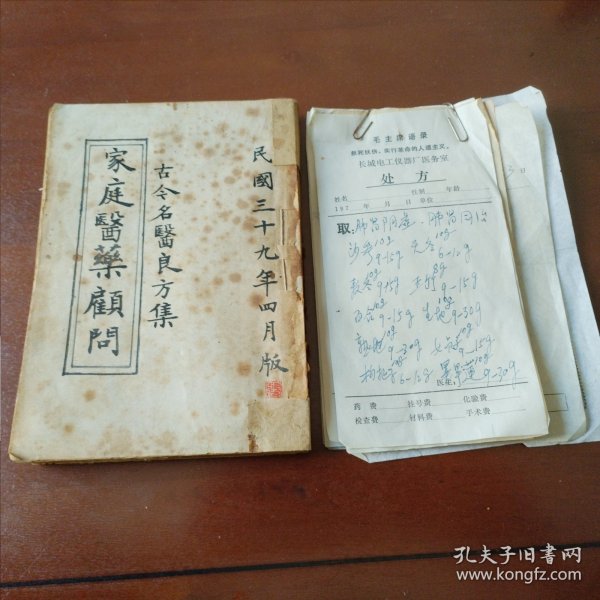 民國三十九年四月版
古今名醫良方集
家庭醫藥顧問
毛主席语录
救死扶伤，实行革命的人道主义。
长城电工仪器厂医务室
处方
姓名 性别 年龄
197 年 月 日 单位
取:
10g 10g
沙参9-15g 天冬6-12g
麦冬 玉竹9-15g
百合9-15g 生地9-30g
熟地9-30g 女贞9-15g
枸杞子6-12g 旱莲9-30g
医生
药费 挂号费 化验费
检查费 材料费 手术费
日
孔夫子旧书网
www.kongfz.com